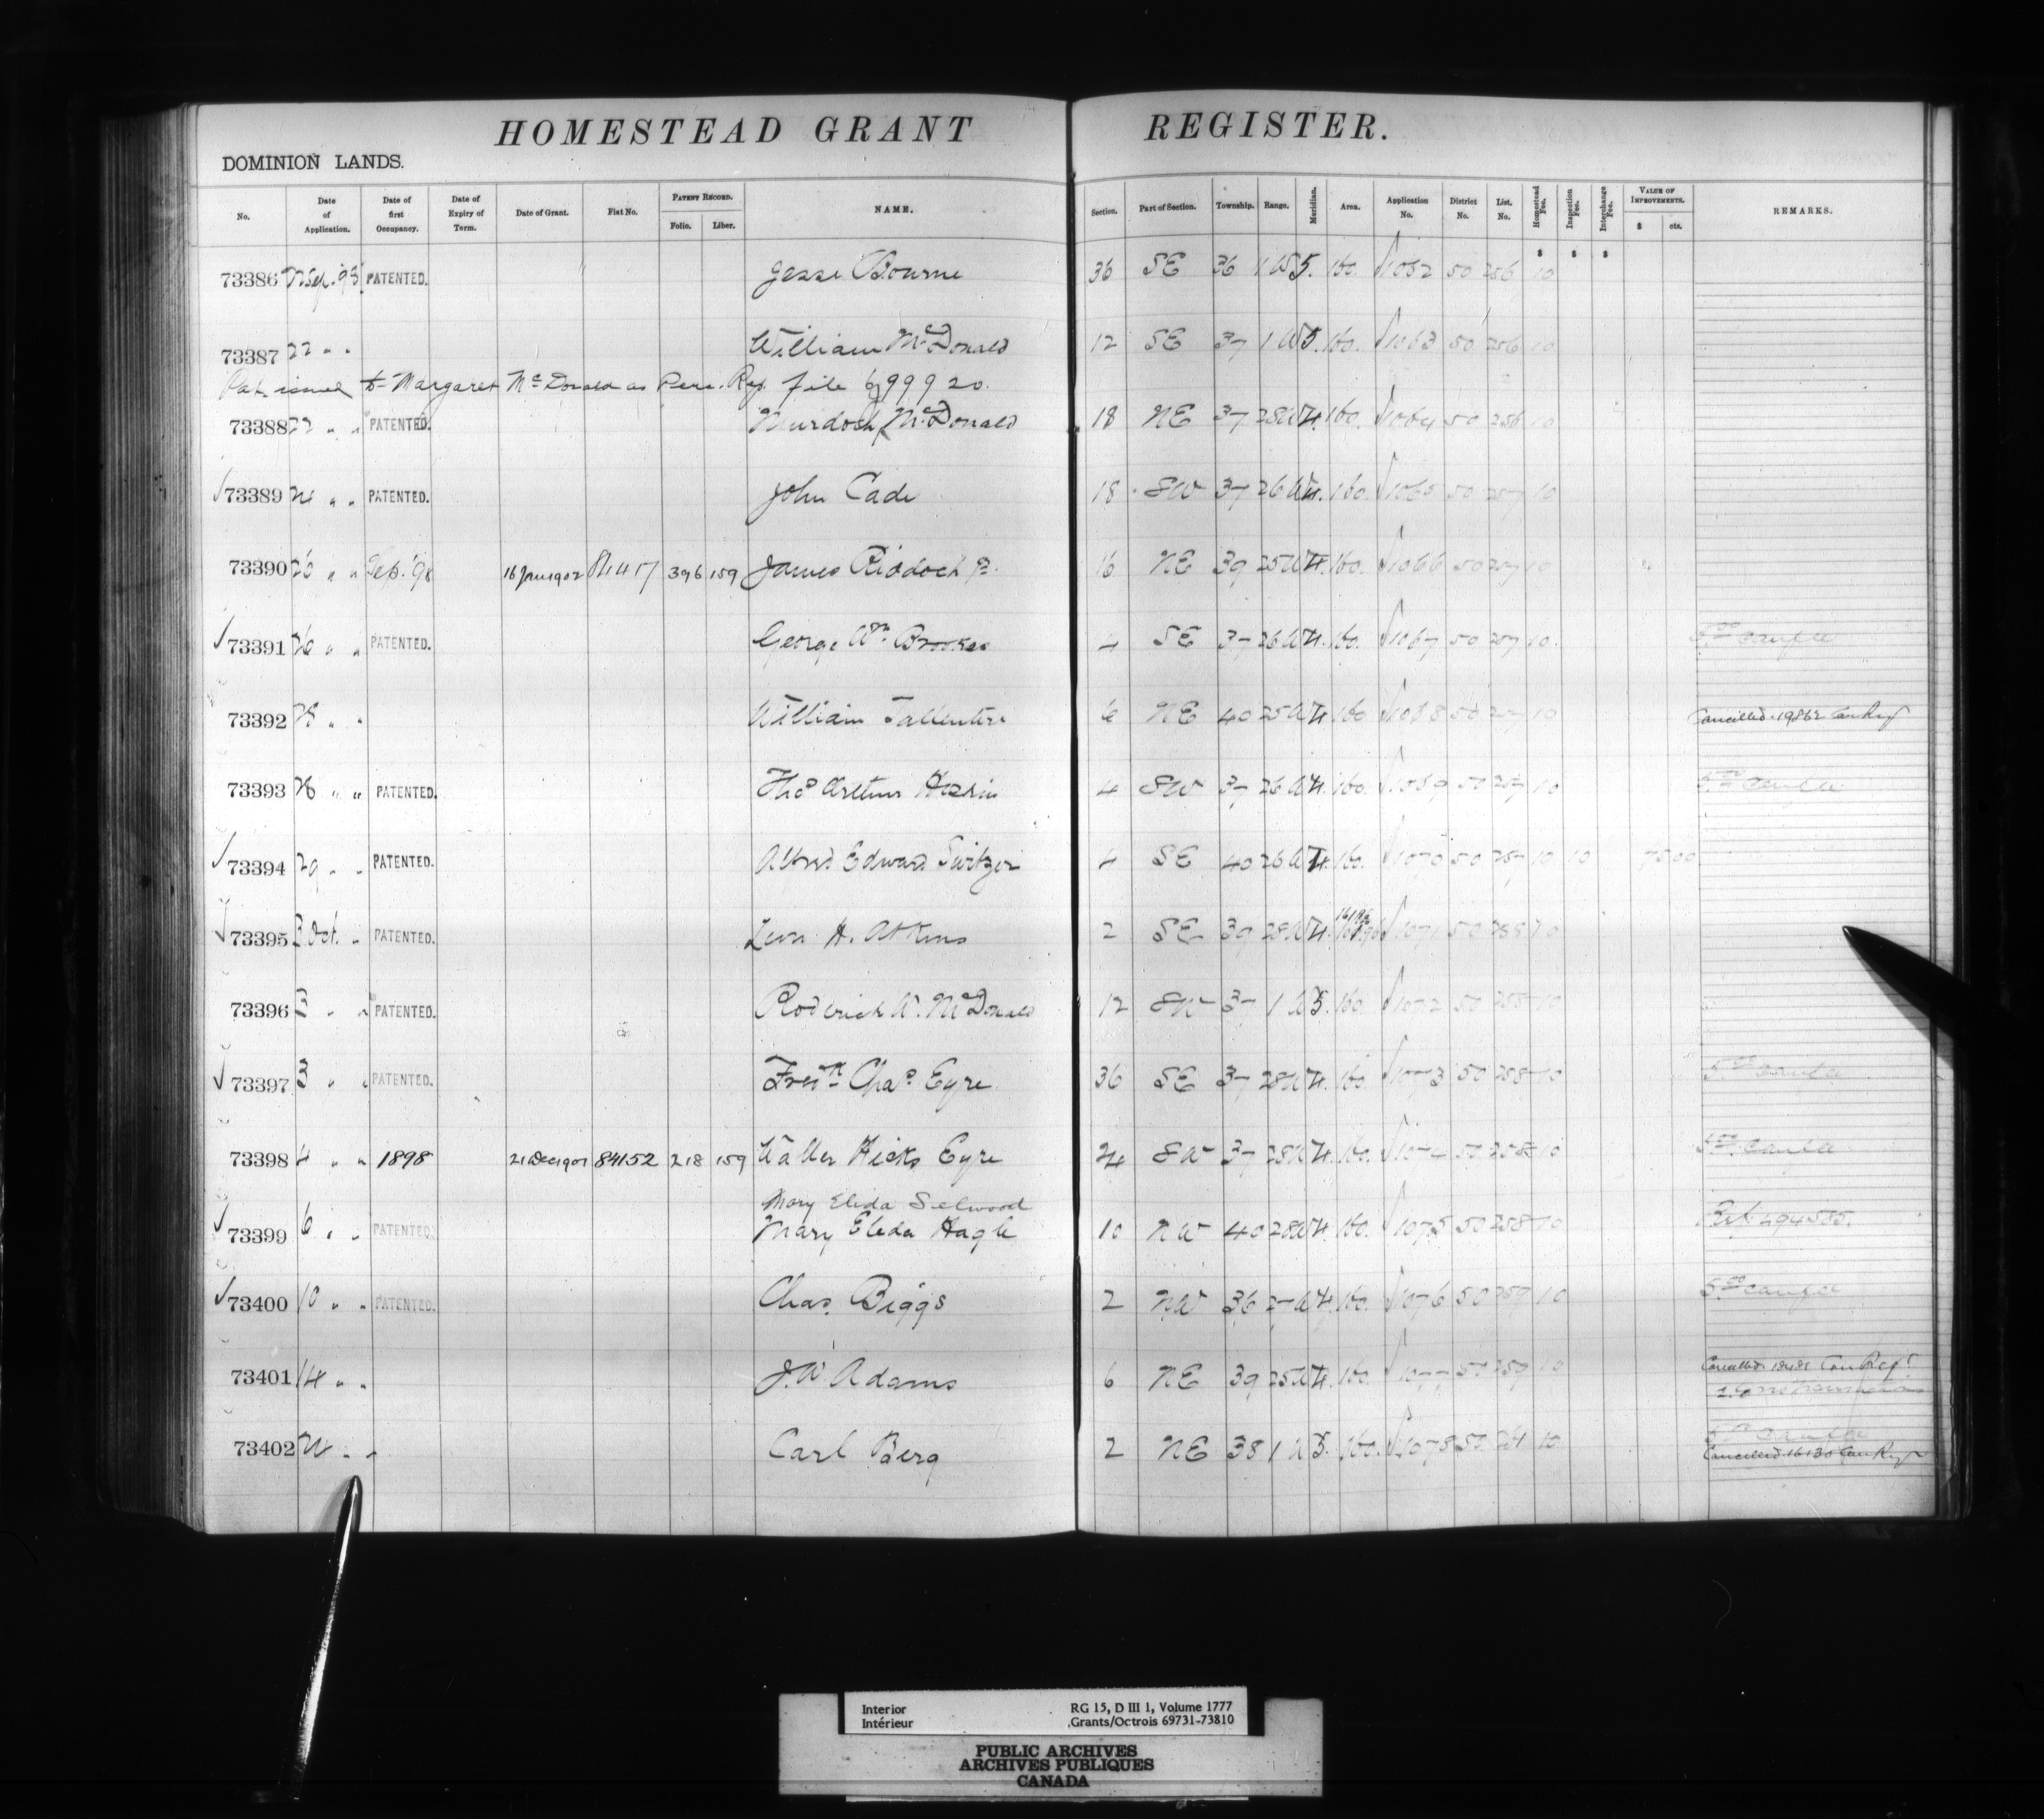 HOMESTEAD GRANT REGISTER.
DOMINION LANDS.
No. Date of Application. Date of first Occupancy. Date of Expiry of Term. Date of Grant. Fiat No. PATENT RECORD. Folio. Liber. NAME. Section. Part of Section. Township. Range. Meridian. Area. Application No. District No. List. No. Homestead Fee. Inspection Fee. Interchange Fee. VALUE OF IMPROVEMENTS. $ cts. REMARKS.
$ $ $
73386 22 Sep. 98 PATENTED. Jesse Bourne 36 SE 36 1 W 5. 160. 1062 50 256 10
73387 22 " " William McDonald 12 SE 37 1 W 5. 160. 1063 50 256 10
Pat. issued to Margaret McDonald as Pere. Rep. file 699920.
73388 22 " " PATENTED. Murdoch McDonald 18 NE 37 28 W 4. 160. 1064 50 256 10
73389 " " PATENTED. John Cade 18 SW 37 26 W 4. 160. 1065 50 257 10
73390 26 " " Sep. '98 16 Jan 1902 396 159 James Riddoch Jr. 16 NE 39 25 W 4. 160. 1066 50 257 10
73391 26 " " PATENTED. George Wm Brookes 4 SE 37 26 W 4. 160. 1067 50 257 10.
73392 28 " " William Tallentire 6 NE 40 25 W 4. 160 1068 50 257 10 Cancelled. 19862 Can Reg
73393 28 " " PATENTED. Thos Arthur 4 SW 37 26 W 4. 160. 1069 50 257 10
73394 29 " " PATENTED. Alfred Edward Switzer 4 SE 40 26 W 4. 160. 1070 50 257 10 10 75 00
73395 3 Oct. " PATENTED. H. Atkins 2 SE 39 28 W 4. 1071 50 258 10
73396 3 " " PATENTED. Roderick W. McDonald 12 SW 37 1 W 5. 160. 1072 50 258 10
73397 3 " " PATENTED. Fredk Chas Eyre. 36 SE 37 28 W 4. 160. 1073 50 258 10
73398 4 " " 1898 21 Dec 1901 84152 218 159 Walter Hicks Eyre 24 SW 37 28 W 4. 160. 1074 50 258 10
Mary Eleda Selwood
73399 6 " " PATENTED. Mary Eleda Hagle 10 NW 40 28 W 4. 160. 1075 50 258 10 Ref. 494585.
73400 10 " " PATENTED. Chas. Biggs 2 NW 36 27 W 4. 160. 1076 50 259 10
73401 14 " " J. W. Adams 6 NE 39 25 W 4. 160. 1077 50 259 10 Cancelled. Can Reg.
73402 " " Carl Berg 2 NE 38 1 W 5. 160. 1078 50 10 Cancelled. 16130 Can Reg
Interior RG 15, D III 1, Volume 1777
Intérieur Grants/Octrois 69731-73810
PUBLIC ARCHIVES
ARCHIVES PUBLIQUES
CANADA